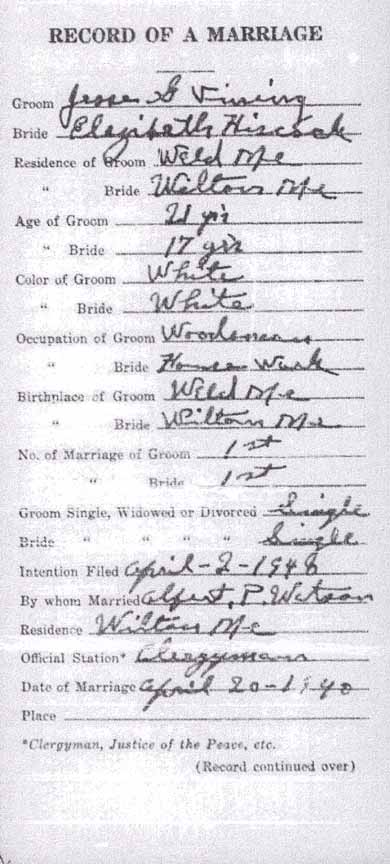 RECORD OF A MARRIAGE
Groom Jesse G Vining
Bride Elezibath Hiscock
Residence of Groom Weld Me
" Bride Welton Me
Age of Groom 21 yrs
" Bride 17 yrs
Color of Groom White
" Bride White
Occupation of Groom Woodsman
" Bride House Work
Birthplace of Groom Weld Me
" Bride Wilton Me
No. of Marriage of Groom 1st
" Bride 1st
Groom Single, Widowed or Divorced Single
Bride " " " " Single
Intention Filed April-2-1940
By whom Married Alfert. P. Watson
Residence Wilton Me
Official Station* Clergyman
Date of Marriage April 20-1940
Place
*Clergyman, Justice of the Peace, etc.
(Record continued over)